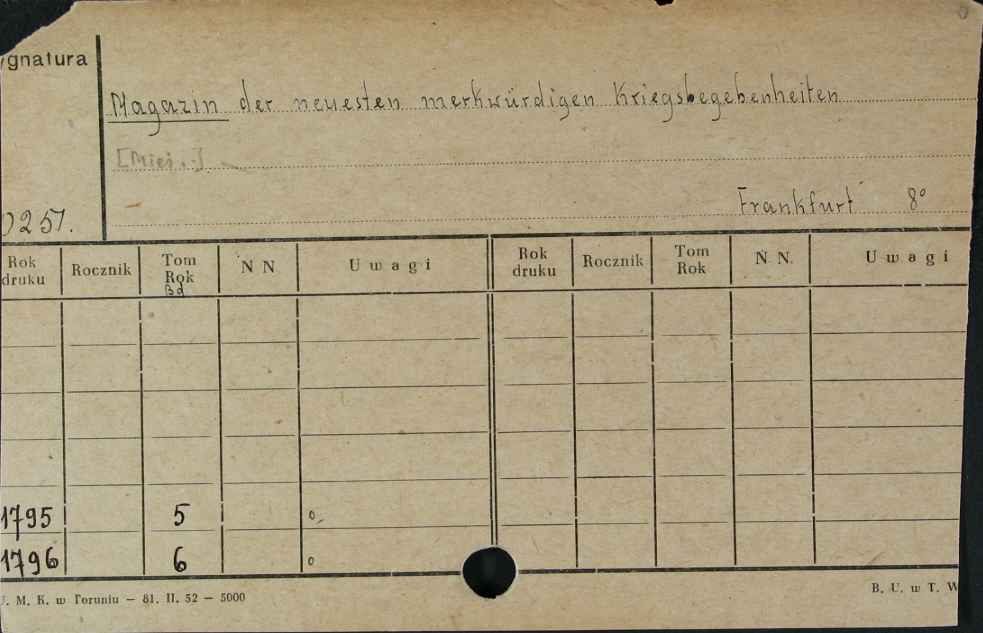 ygnatura
Magazin der neuesten merkwürdigen Kriegsbegebenheiten
[Miej...]
Frankfurt 8°
0257.
Rok druku Rocznik Tom Rok Bd N N Uwagi Rok druku Rocznik Tom Rok N N. Uwagi
1795 5 o
1796 6 o
U. M. K. w Toruniu — 81. II. 52 — 5000
B. U. w T. W